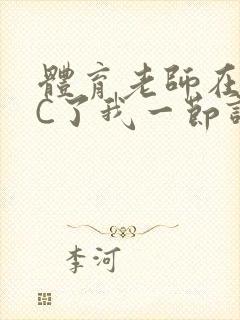 體育老師在
C了我一節
李河